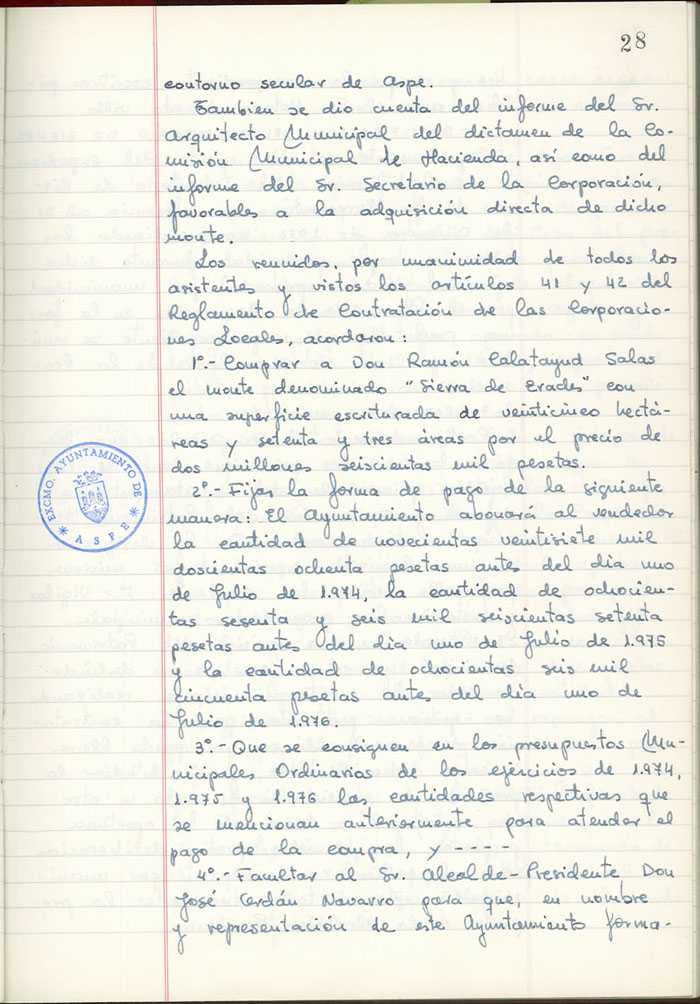 28
contorno secular de Aspe.
Tambien se dio cuenta del informe del Sr.
Arquitecto Municipal del dictamen de la Co-
misión Municipal de Hacienda, así como del
informe del Sr. Secretario de la Corporación,
favorables a la adquisición directa de dicho
monte.
Los reunidos, por unanimidad de todos los
asistentes y vistos los artículos 41 y 42 del
Reglamento de Contratación de las Corporacio-
nes Locales, acordaron:
1º.- Comprar a Don Ramón Calatayud Salas
el monte denominado "Sierra de Erades" con
una superficie escriturada de veinticinco hectá-
reas y setenta y tres áreas por el precio de
dos millones seiscientas mil pesetas.
2º.- Fijar la forma de pago de la siguiente
manera: El Ayuntamiento abonará al vendedor
la cantidad de novecientas veintisiete mil
doscientas ochenta pesetas antes del día uno
de Julio de 1.974, la cantidad de ochocien-
tas sesenta y seis mil seiscientas setenta
pesetas antes del día uno de Julio de 1.975
y la cantidad de ochocientas seis mil
cincuenta pesetas antes del día uno de
Julio de 1.976.
3º.- Que se consignen en los presupuestos Mu-
nicipales Ordinarios de los ejercicios de 1.974,
1.975 y 1.976 las cantidades respectivas que
se mencionan anteriormente para atender el
pago de la compra, y - - - -
4º.- Facultar al Sr. Alcalde-Presidente Don
José Cerdán Navarro para que, en nombre
y representación de este Ayuntamiento forma-
EXCMO. AYUNTAMIENTO DE
* ASPE *